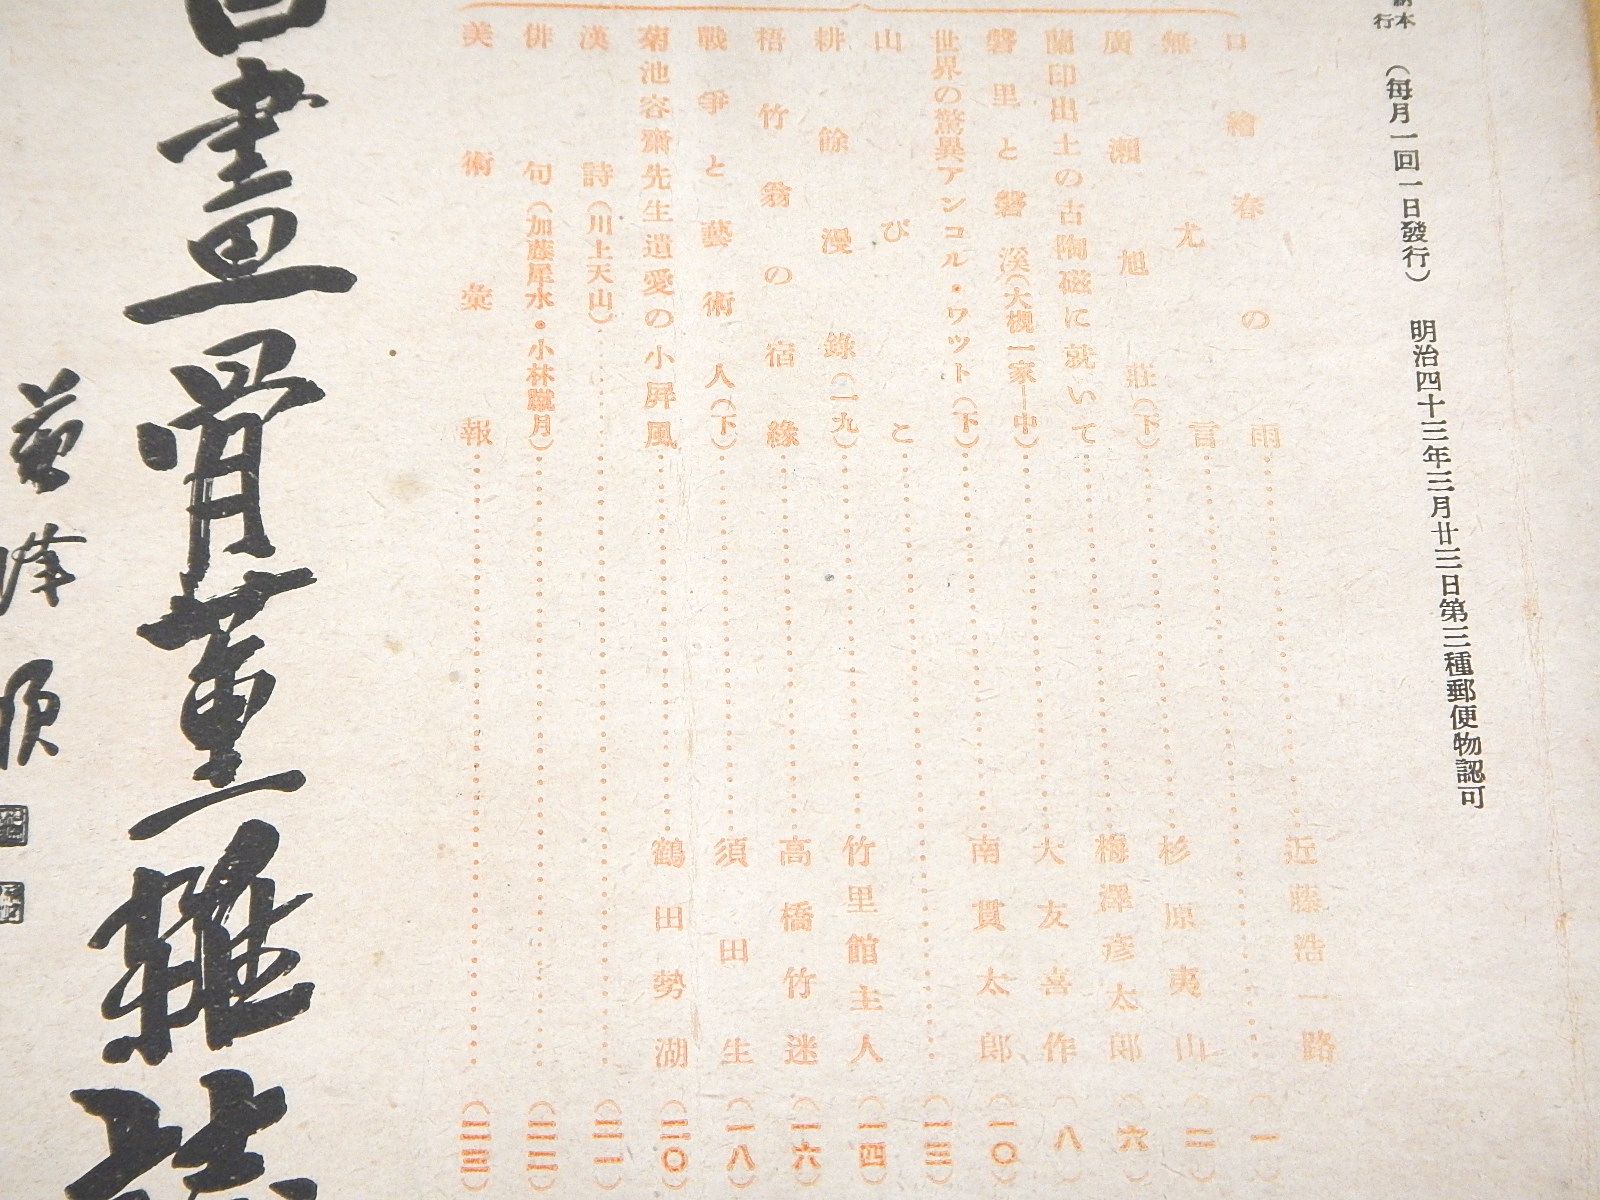 本
行
（毎月一回一日發行）　明治四十三年三月廿三日第三種郵便物認可
口繪　春の雨……近藤浩一路（一）
無尤言……杉原夷山（二）
廣瀬旭莊（下）……梅澤彦太郎（六）
蘭印出土の古陶磁に就いて……大友喜作（八）
磐里と磐溪（大槻一家―中）……南貫太郎（一〇）
世界の驚異アンコル・ワット（下）……（一三）
山びこ……竹里館主人（一四）
耕餘漫錄（一九）……高橋竹迷（一六）
梧竹翁の宿緣……須田生（一八）
戰爭と藝術人（下）……鶴田勢湖（二〇）
菊池容齋先生遺愛の小屏風
漢詩（川上天山）……（二一）
俳句（加藤犀水・小林蹴月）……（二二）
美術彙報……（二三）
畫骨董雜誌